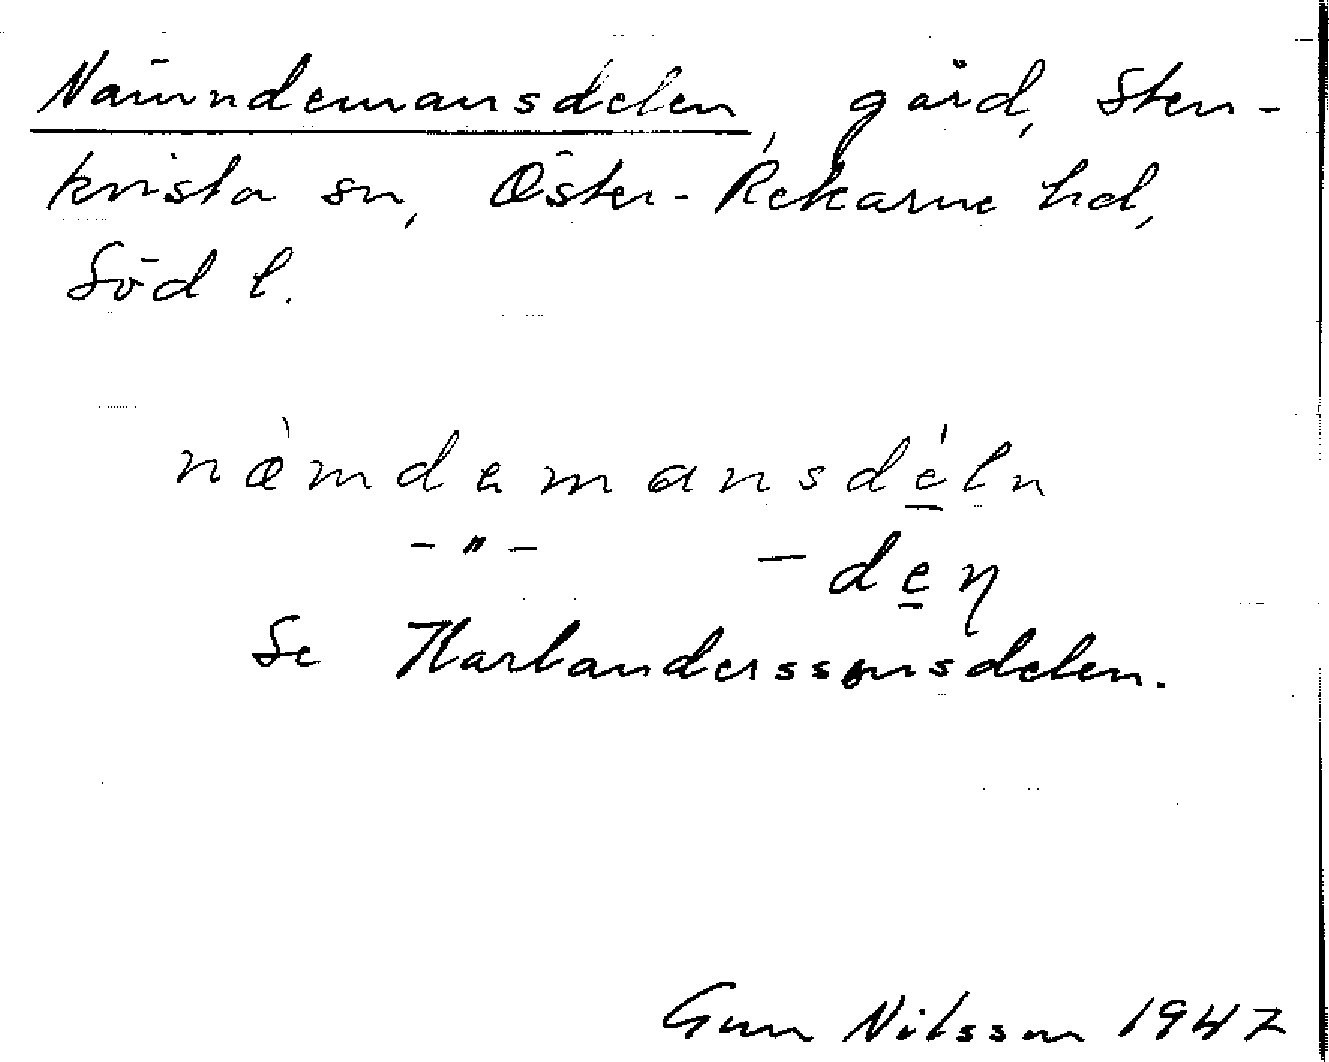 Nämndemansdelen, gård, Sten-
kvista sn, Öster-Rekarne hd,
Söd l.
næ̀mdemansdé̲ln
-"- -de̲ɳ
Se Karlanderssonsdelen.
Gun Nilsson 1947